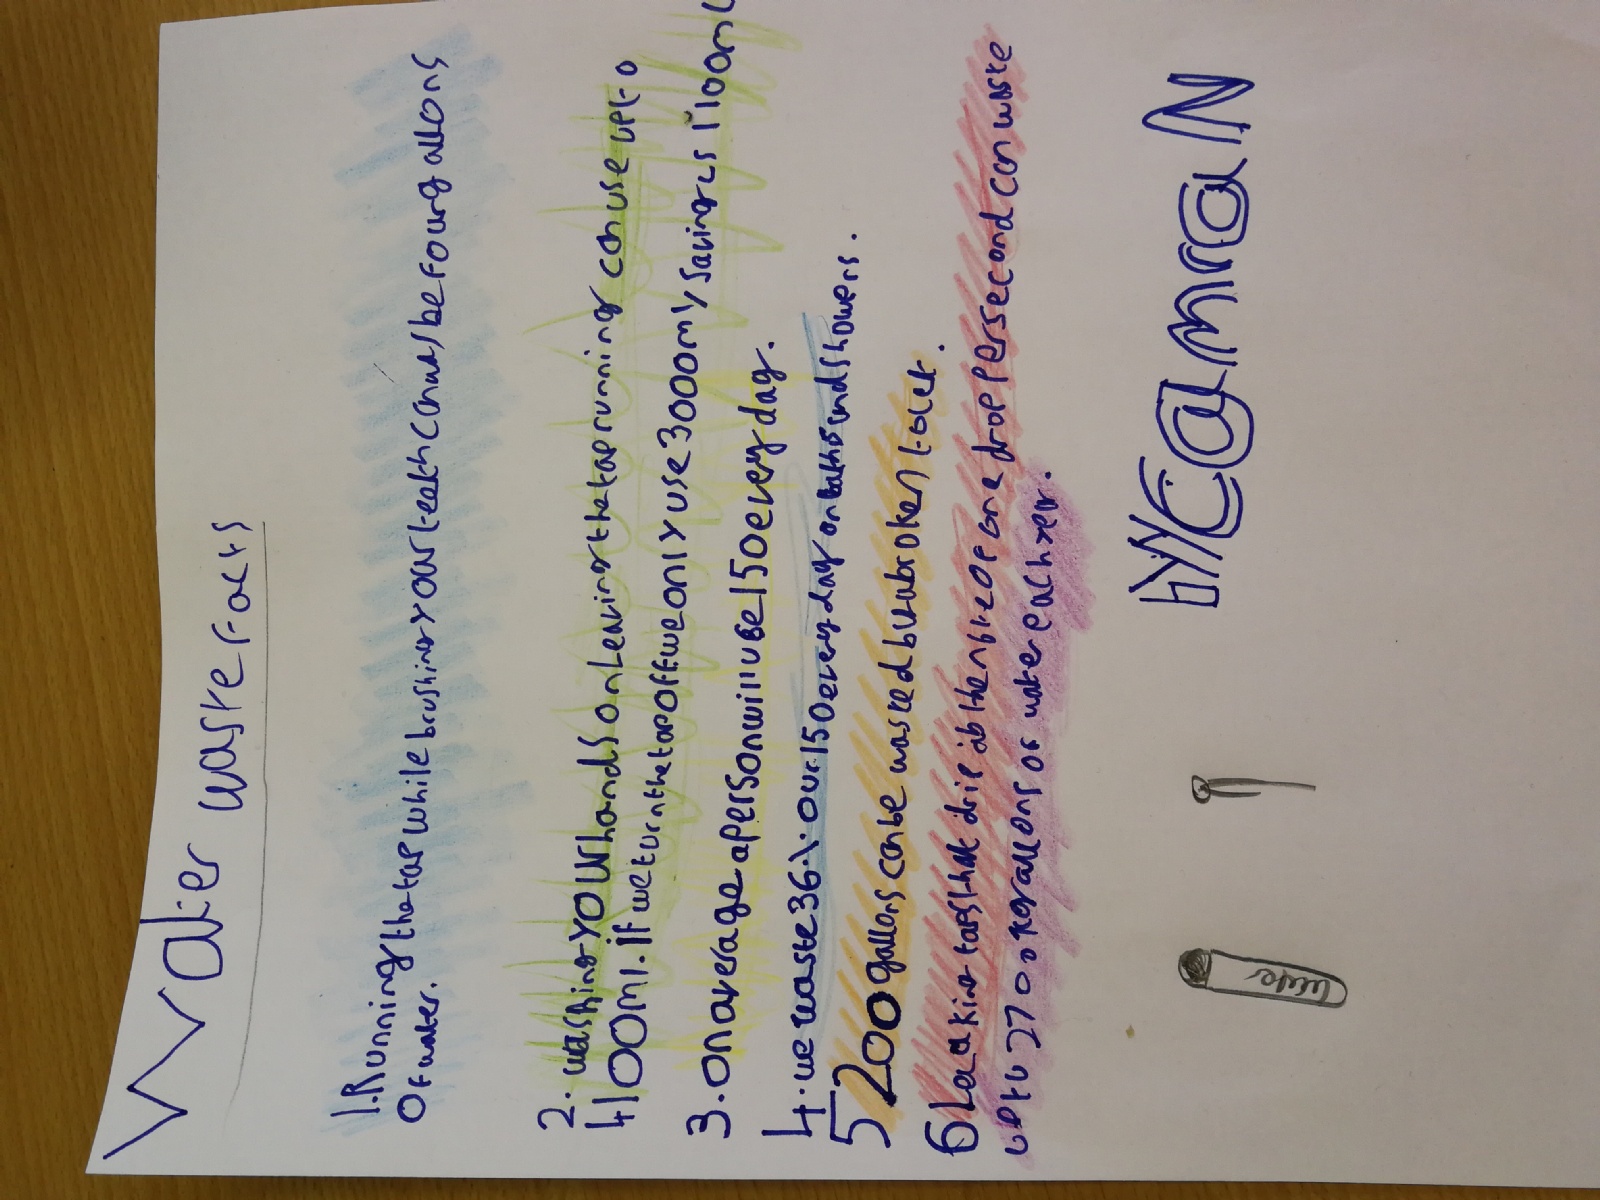 Water waste Facts
1. Running the tap while brushing your teeth can waste four gallons
of water.
2. washing your hands on leaving the tap running can use up to
4100ml. If we turn the tap off we only use 3000ml saving us 1100ml
3. On average a person will use 150 every day.
4. we waste 36% our 150 every day on baths and showers.
5 200 gallons can be wasted but a broken toilet.
6 Leaking taps that drip at the rate of one drop per second can waste
up to 2700 gallons of water each year.
by Camran